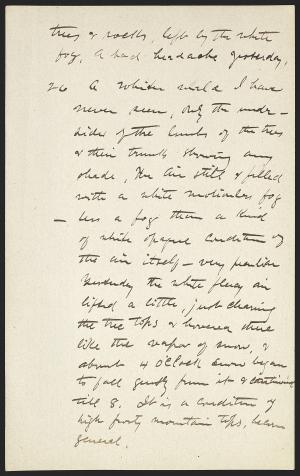 trees & rocks, left by the white
fog, A bad headache yesterday,
26 A whiter world I have
never seen, only the under-
sides of the limbs of the trees
& their trunks showing any
shade, The air still & filled
with a white motionless fog
— less a fog than a kind
of white opaque condition of
the air itself — very peculiar
Yesterday the white fleecy air
lifted a little, just clearing
the tree tops & hovered there
like the vapor of snow, &
about 4 o'clock snow began
to fall gently from it & continuing
till 8. It is a condition of
high frosty mountain tops, become
general.